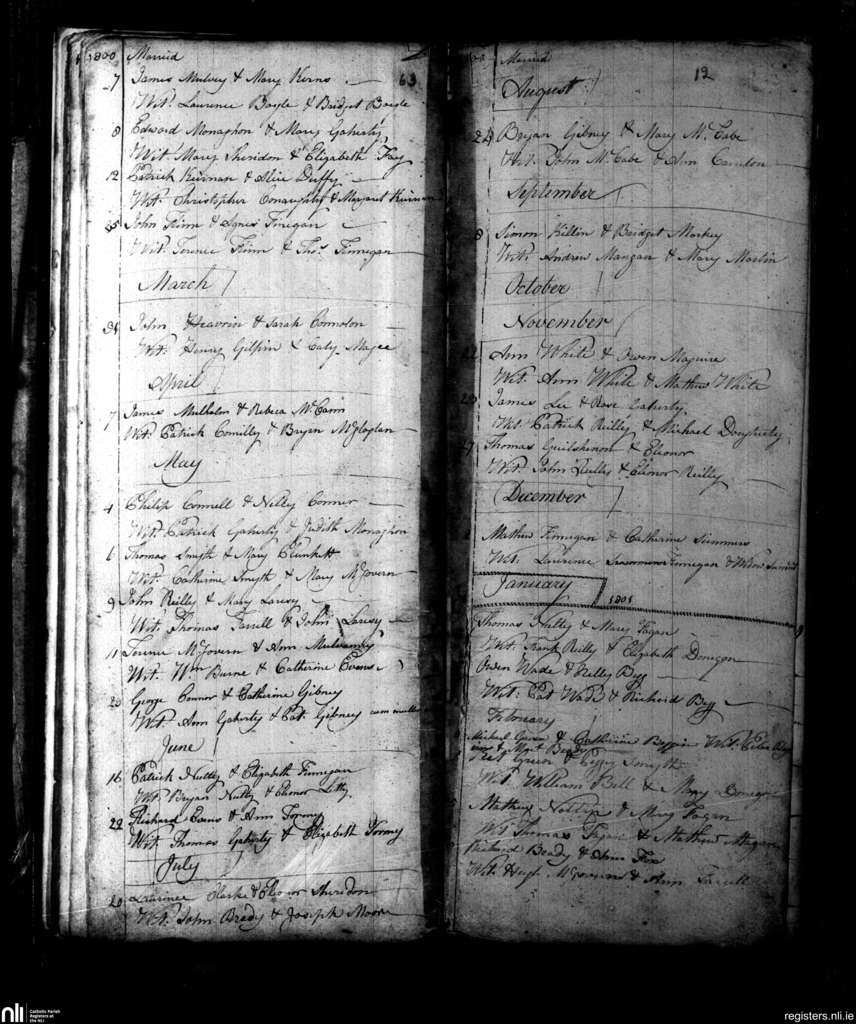 1800 Married
63
7 James Mulvey & Mary Kerns
Wit. Laurence Boyle & Bridget Boyle
8 Edward Monaghon & Mary Gaherty
Wit. Mary Sheridon & Elizabeth Fay
12 Patrick Kiernan & Alice Duffy
Wit. Christopher Conaughty & Margaret Kiernan
25 John Finn & Agnes Finegan
Wit. Terence Finn & Thos. Finnegan
March
31 John Heavrin & Sarah Connolon
Wit. Henry Gilpin & Caty Magee
April
7 James Mulholm & Rebeca McCann
Wit. Patrick Connilly & Bryan
May
4 Philip Connell & Nelley Connor
Wit. Patrick Gaherty & Judith Monaghon
6 Thomas Smyth & Mary Plunkett
Wit. Catherine Smyth & Mary McGovern
9 John Reilly & Mary Laresy
Wit. Thomas Farrell & John Laresy
11 Terence McGovern & Ann
Wit. Wm Burne & Catherine Evans
20 George Connor & Catherine Gibney
Wit. Ann Gaherty & Pat. Gibney
June
16 Patrick Nulty & Elizabeth Finnegan
Wit. Bryan Nulty & Elionor
22 Richard Evans & Ann Tormy
Wit. Thomas Gaherty & Elizabeth Tormy
July
20 Laurence Clarke & Elionor Sheridon
Wit. John Brady & Joseph Moore
Married
12
August
24 Bryan Gibney & Mary McCabe
Wit. John McCabe & Ann
September
8 Simon & Bridget Markey
Wit. Andrew Mangan & Mary Martin
October
November
Ann White & Owen Maguire
Wit. Ann White & Mathew White
James Lee & Rose Gaherty
Wit. Patrick Reilly & Michael
Thomas & Elionor
Wit. John & Elionor Reilly
December
Mathew Finnegan & Catherine Summers
Wit. Laurence Finnegan &
January 1801
Thomas Nulty & Mary Fagan
Wit. Frank Reilly & Elizabeth Donegon
Owen Wade & Nelley Begg
Wit. Pat Wade & Richard Begg
February
Michael & Catherine Wit. Peter
& Mgt Brady
Green & Smyth
Wit. William Bell & Mary
Mathew & Mary Fagan
Wit. Thomas & Mathew
Richard Brady & Fox
Wit. Hugh & Ann Farrell
nli
Catholic Parish
Registers at
the NLI
registers.nli.ie